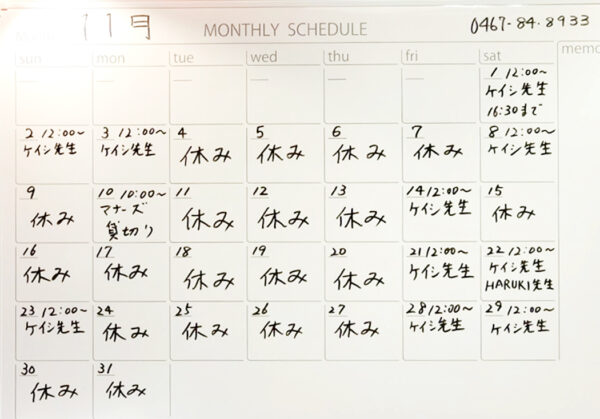 11月 MONTHLY SCHEDULE 0467-84-8933
sun mon tue wed thu fri sat memo
1 12:00~
ケイシ先生
16:30まで
2 12:00~
ケイシ先生
3 12:00~
ケイシ先生
4
休み
5
休み
6
休み
7
休み
8 12:00~
ケイシ先生
9
休み
10 10:00~
マナーズ
貸切り
11
休み
12
休み
13
休み
14 12:00~
ケイシ先生
15
休み
16
休み
17
休み
18
休み
19
休み
20
休み
21 12:00~
ケイシ先生
22 12:00~
ケイシ先生
HARUKI先生
23 12:00~
ケイシ先生
24
休み
25
休み
26
休み
27
休み
28 12:00~
ケイシ先生
29 12:00~
ケイシ先生
30
休み
31
休み